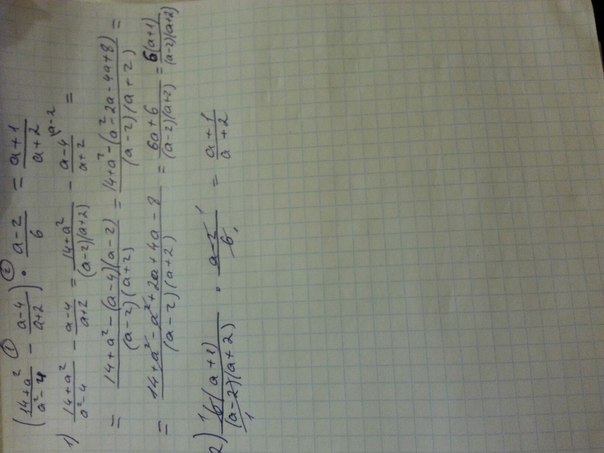 ( (14+a²)/(a²-4) - (a-4)/(a+2) ) ① ② · (a-2)/6 = (a+1)/(a+2)
1) (14+a²)/(a²-4) - (a-4)/(a+2) = (14+a²)/((a-2)(a+2)) - (a-4)/(a+2) \a-2 =
= (14+a²-(a-4)(a-2))/((a-2)(a+2)) = (14+a²-(a²-2a-4a+8))/((a-2)(a+2)) =
= (14+a²-a²+2a+4a-8)/((a-2)(a+2)) = (6a+6)/((a-2)(a+2)) = 6(a+1)/((a-2)(a+2))
2) 6(a+1)/((a-2)(a+2)) · (a-2)/6 = (a+1)/(a+2)